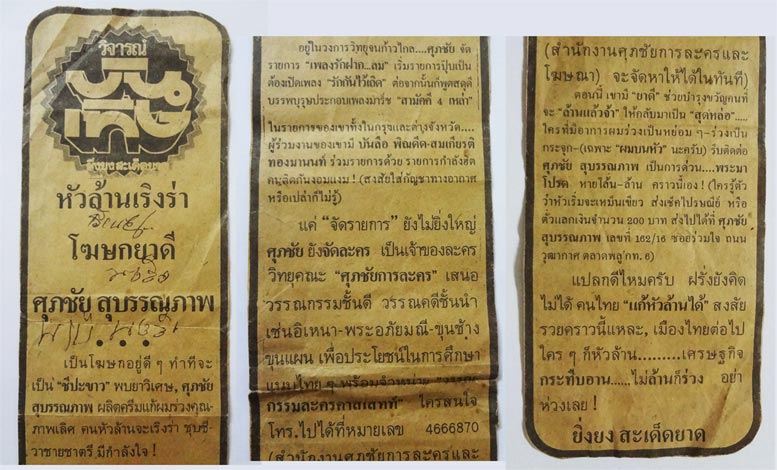 วิจารณ์
บันเทิง
ยิ่งยง สะเด็ดยาด
หัวล้านเริงร่า
โฆษกยาดี
ศุภชัย สุบรรณภาพ
เป็นโฆษกอยู่ดี ๆ ทำทีจะ
เป็น "ชีปะขาว" พบยาวิเศษ, ศุภชัย
สุบรรณภาพ ผลิตครีมแก้ผมร่วงคุณ-
ภาพเลิศ คนหัวล้านจะเริงร่า ชุบชี-
วาชายชาตรี มีกำลังใจ !
อยู่ในวงการวิทยุจนก้าวไกล....ศุภชัย จัด
รายการ "เพลงรักฝาก...ลม" เริ่มรายการปุ๊บเป็น
ต้องเปิดเพลง "รักกันไว้เถิด" ต่อจากนั้นก็พูดสดุดี
บรรพบุรุษประกอบเพลงมาร์ช "สามัคคี 4 เหล่า"
ในรายการของเขาทั้งในกรุงและต่างจังหวัด....
ผู้ร่วมงานของเขามี บันลือ พิณดีด-สมเกียรติ
ทองมานนท์ ร่วมรายการด้วย รายการกำลังฮิต
คนติดกันงอมแงม ! (สงสัยใส่กัญชาทางอากาศ
หรือเปล่าก็ไม่รู้)
แค่ "จัดรายการ" ยังไม่ยิ่งใหญ่
ศุภชัย ยังจัดละคร เป็นเจ้าของละคร
วิทยุคณะ "ศุภชัยการละคร" เสนอ
วรรณกรรมชั้นดี วรรณคดีชั้นนำ
เช่นอิเหนา-พระอภัยมณี-ขุนช้าง
ขุนแผน เพื่อประโยชน์ในการศึกษา
แบบไทย ๆ พร้อมจำหน่าย
ใครสนใจ
โทร.ไปได้ที่หมายเลข 4666870
(สำนักงานศุภชัยการละครและ
(สำนักงานศุภชัยการละครและ
โฆษณา) จะจัดหาให้ได้ในทันที)
ตอนนี้ เขามี "ยาดี" ช่วยบำรุงขวัญคนที่
จะ "ล้านแล้วจ้า" ให้กลับมาเป็น "สุดหล่อ"....
ใครที่มีอาการผมร่วงเป็นหย่อม ๆ-ร่วงเป็น
กระจุก-(เฉพาะ "ผมบนหัว" นะครับ) รีบติดต่อ
ศุภชัย สุบรรณภาพ เป็นการด่วน....พระมา
โปรด หายโล้น-ล้าน คราวนี้เอง ! (ใครรู้ตัว
ว่าหัวเริ่มจะเหม็นเขียว ส่งเช็คไปรษณีย์ หรือ
ตัวแลกเงินจำนวน 200 บาท ส่งไปได้ที่ ศุภชัย
สุบรรณภาพ เลขที่ 162/16 ซอยร่วมใจ ถนน
วุฒากาศ ตลาดพลู กท. 6)
แปลกดีไหมครับ ฝรั่งยังคิด
ไม่ได้ คนไทย "แก้หัวล้านได้" สงสัย
รวยคราวนี้แหละ, เมืองไทยต่อไป
ใคร ๆ ก็หัวล้าน.........เศรษฐกิจ
กระทืบอาน......ไม่ล้านก็ร่วง อย่า
ห่วงเลย !
ยิ่งยง สะเด็ดยาด